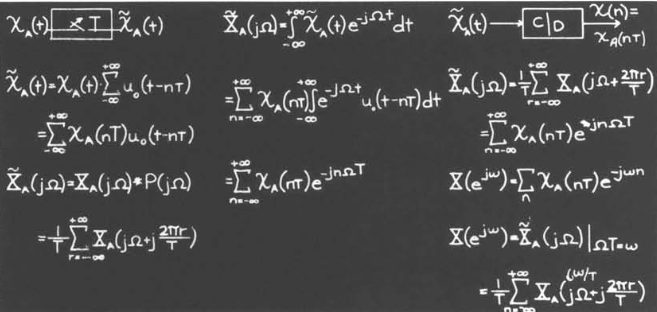 x_A(t) [ ↗T ] x̃_A(t)
x̃_A(t)=x_A(t)·∑_{-∞}^{+∞} u_o(t-nT)
=∑_{-∞}^{+∞} x_A(nT)u_o(t-nT)
X̃_A(jΩ)=X_A(jΩ)*P(jΩ)
=1/T ∑_{r=-∞}^{+∞} X_A(jΩ+j 2πr/T)
X̃_A(jΩ)=∫_{-∞}^{+∞} x̃_A(t)e^{-jΩt}dt
=∑_{n=-∞}^{+∞} x_A(nT)∫_{-∞}^{+∞} e^{-jΩt} u_o(t-nT)dt
=∑_{n=-∞}^{+∞} x_A(nT)e^{-jnΩT}
x̃_A(t)→[ C/D ]→ x(n)=
x_A(nT)
X̃_A(jΩ)=1/T ∑_{r=-∞}^{+∞} X_A(jΩ+ 2πr/T)
=∑_{n=-∞}^{+∞} x_A(nT)e^{-jnΩT}
X(e^{jω})=∑_n x_A(nT)e^{-jωn}
X(e^{jω})=X̃_A(jΩ)|_{ΩT=ω}
ω/T
=1/T ∑_{n=-∞}^{+∞} X_A(jΩ+j 2πr/T)